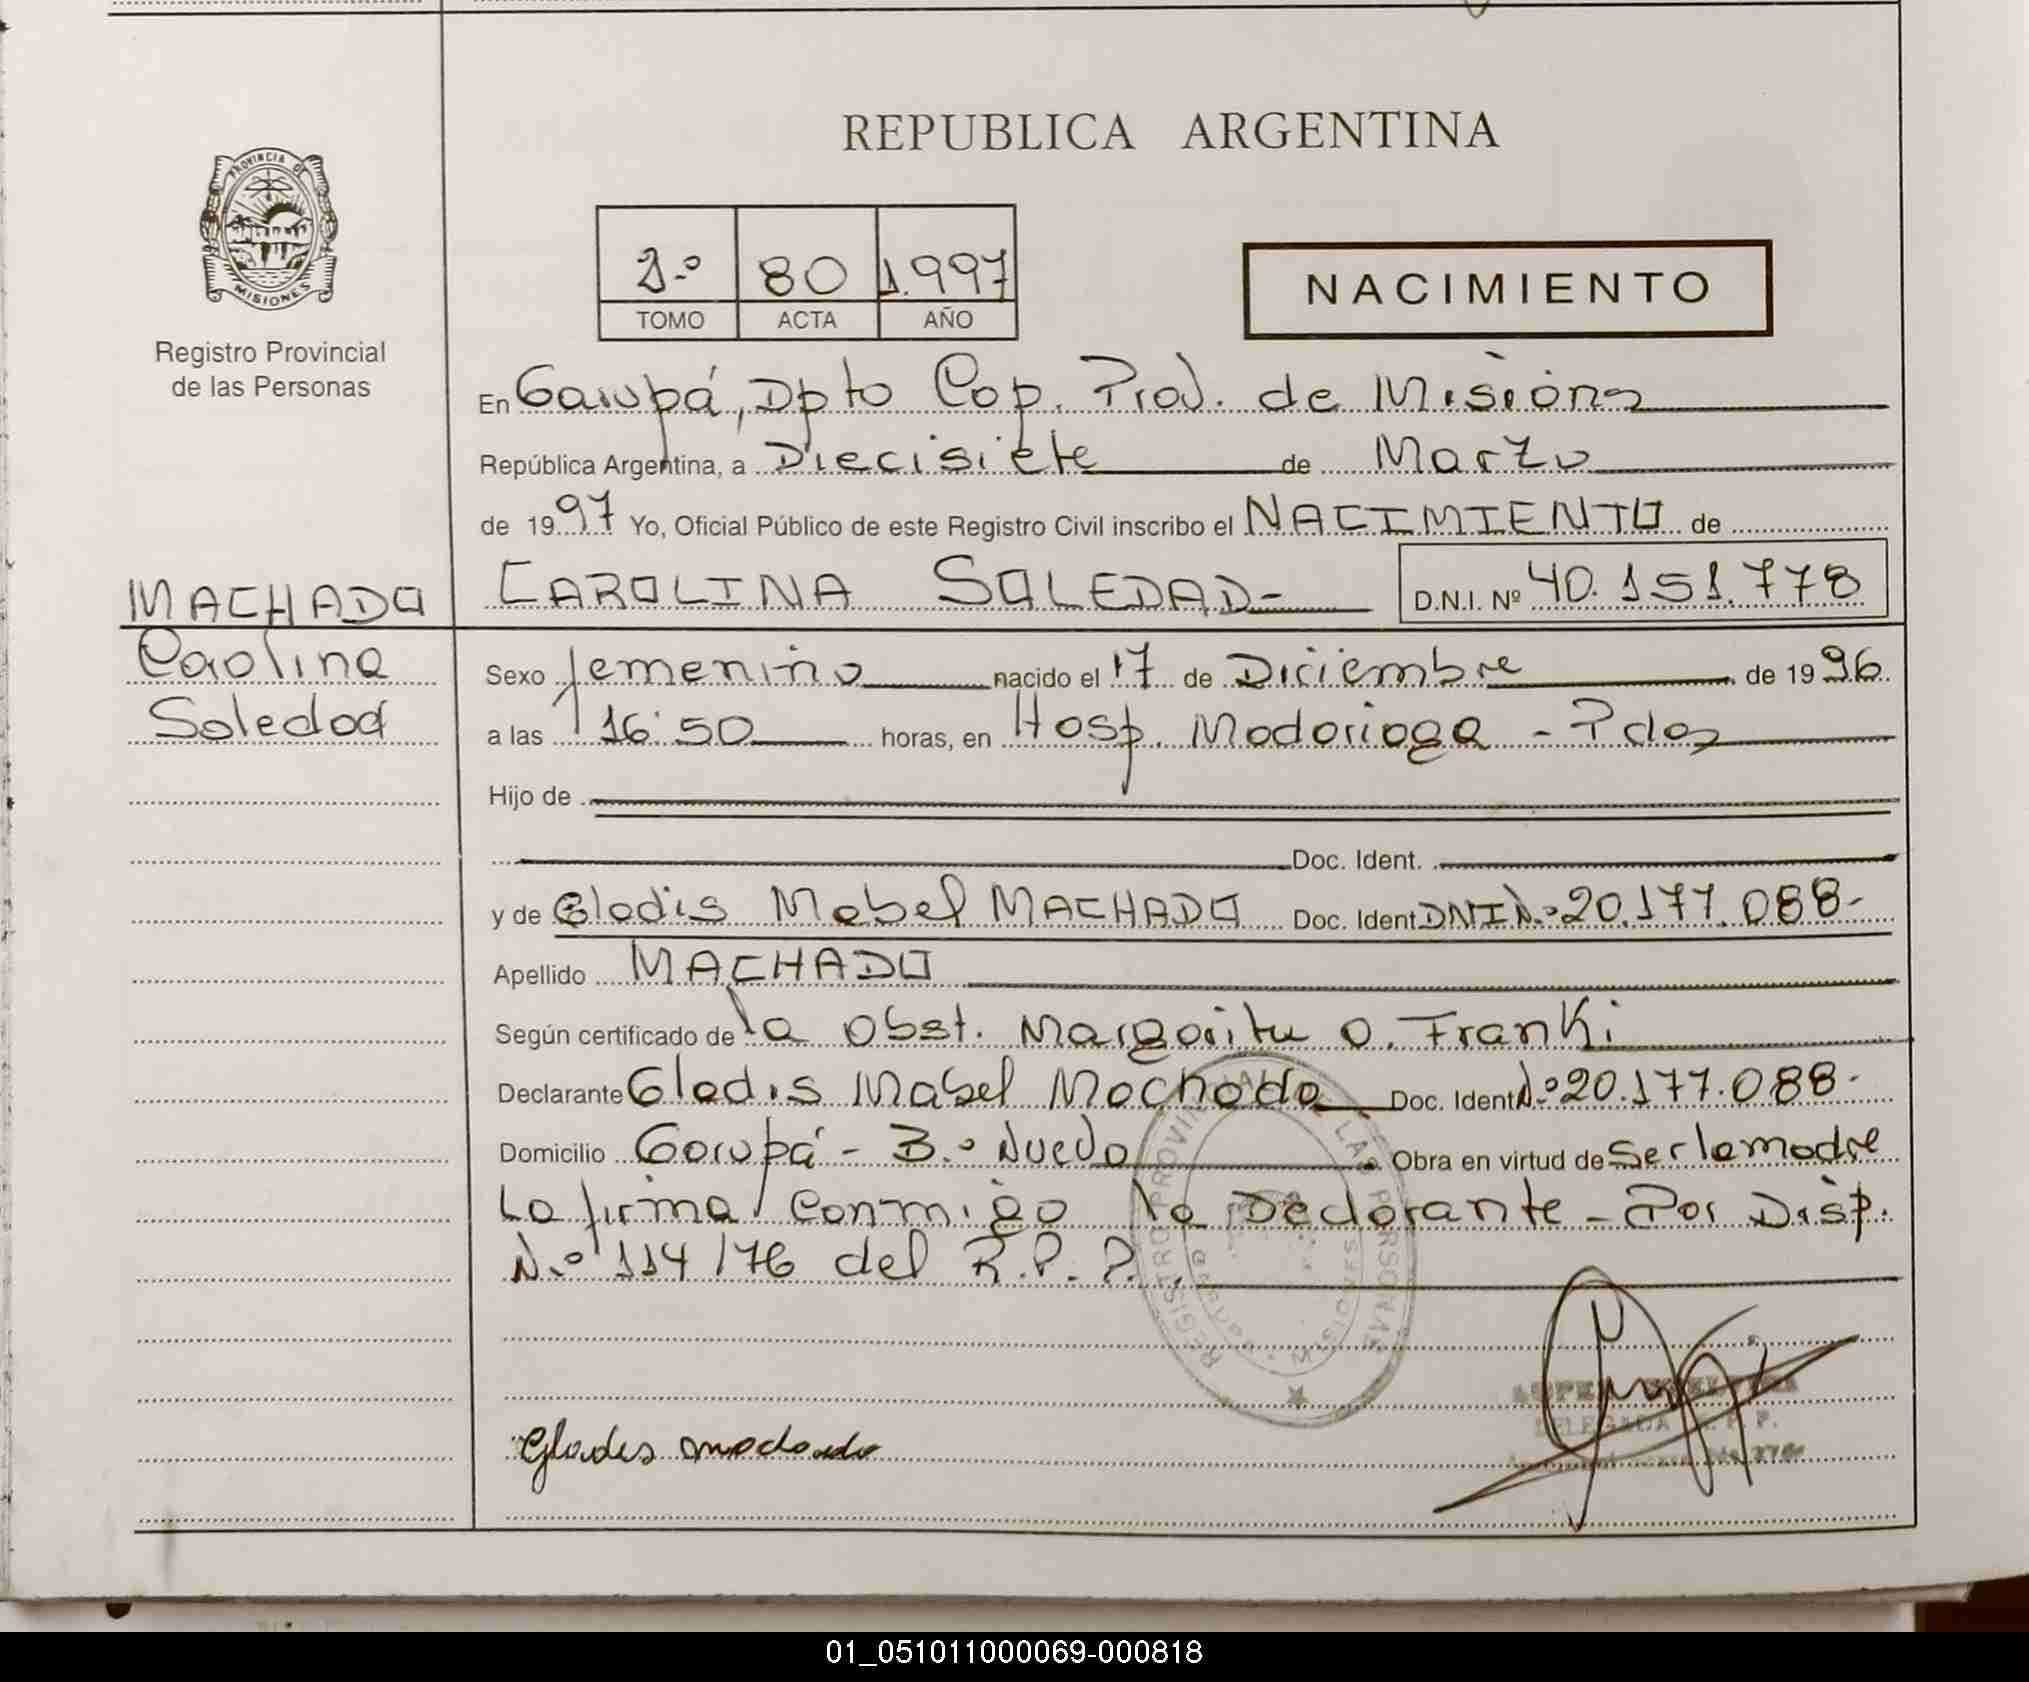 REPUBLICA ARGENTINA
PROVINCIA DE
MISIONES
Registro Provincial
de las Personas
1.º 80 1.997
TOMO ACTA AÑO
NACIMIENTO
En Garupá, Dpto Cap. Prov. de Misiones
República Argentina, a Diecisiete de Marzo
de 1997 Yo, Oficial Público de este Registro Civil inscribo el NACIMIENTO de
MACHADO
CAROLINA SOLEDAD- D.N.I. Nº 40.151.778
Caolina
Soledad
Sexo femenino nacido el 17 de Diciembre de 1996
a las 16:50 horas, en Hosp. Madariaga - Pdas
Hijo de
Doc. Ident.
y de Gladis Mabel MACHADO Doc. Ident DNI N.º 20.177.088-
Apellido MACHADO
Según certificado de la Obst. Margarita O. Franki
Declarante Gladis Mabel Machado Doc. Ident N.º 20.177.088-
Domicilio Garupá - B.º Nuevo Obra en virtud de ser la madre
La firma conmigo la Declarante - Por Disp.
N.º 114/76 del R.P.P.
REGISTRO PROVINCIAL DE LAS PERSONAS
MISIONES
DELEGADA R. P. P.
Gladis machado
01_051011000069-000818